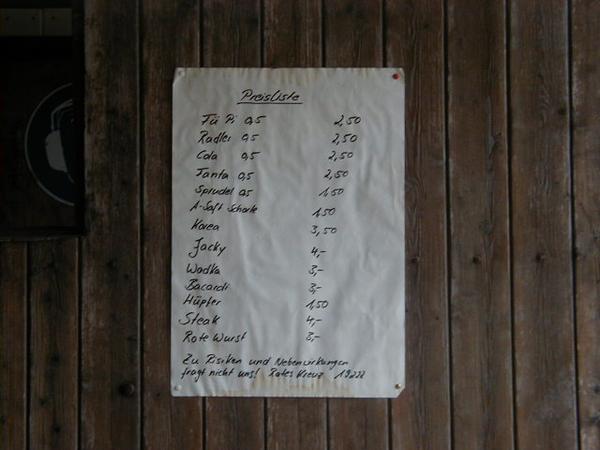 Preisliste
Fü Pi 0,5 2,50
Radler 0,5 2,50
Cola 0,5 2,50
Fanta 0,5 2,50
Sprudel 0,5 1,50
A-Saft Schorle 1,50
Korea 3,50
Jacky 4,-
Wodka 3,-
Bacardi 3,-
Hüpfer 1,50
Steak 4,-
Rote Wurst 3,-
Zu Risiken und Nebenwirkungen
fragt nicht uns! Rotes Kreuz 19222